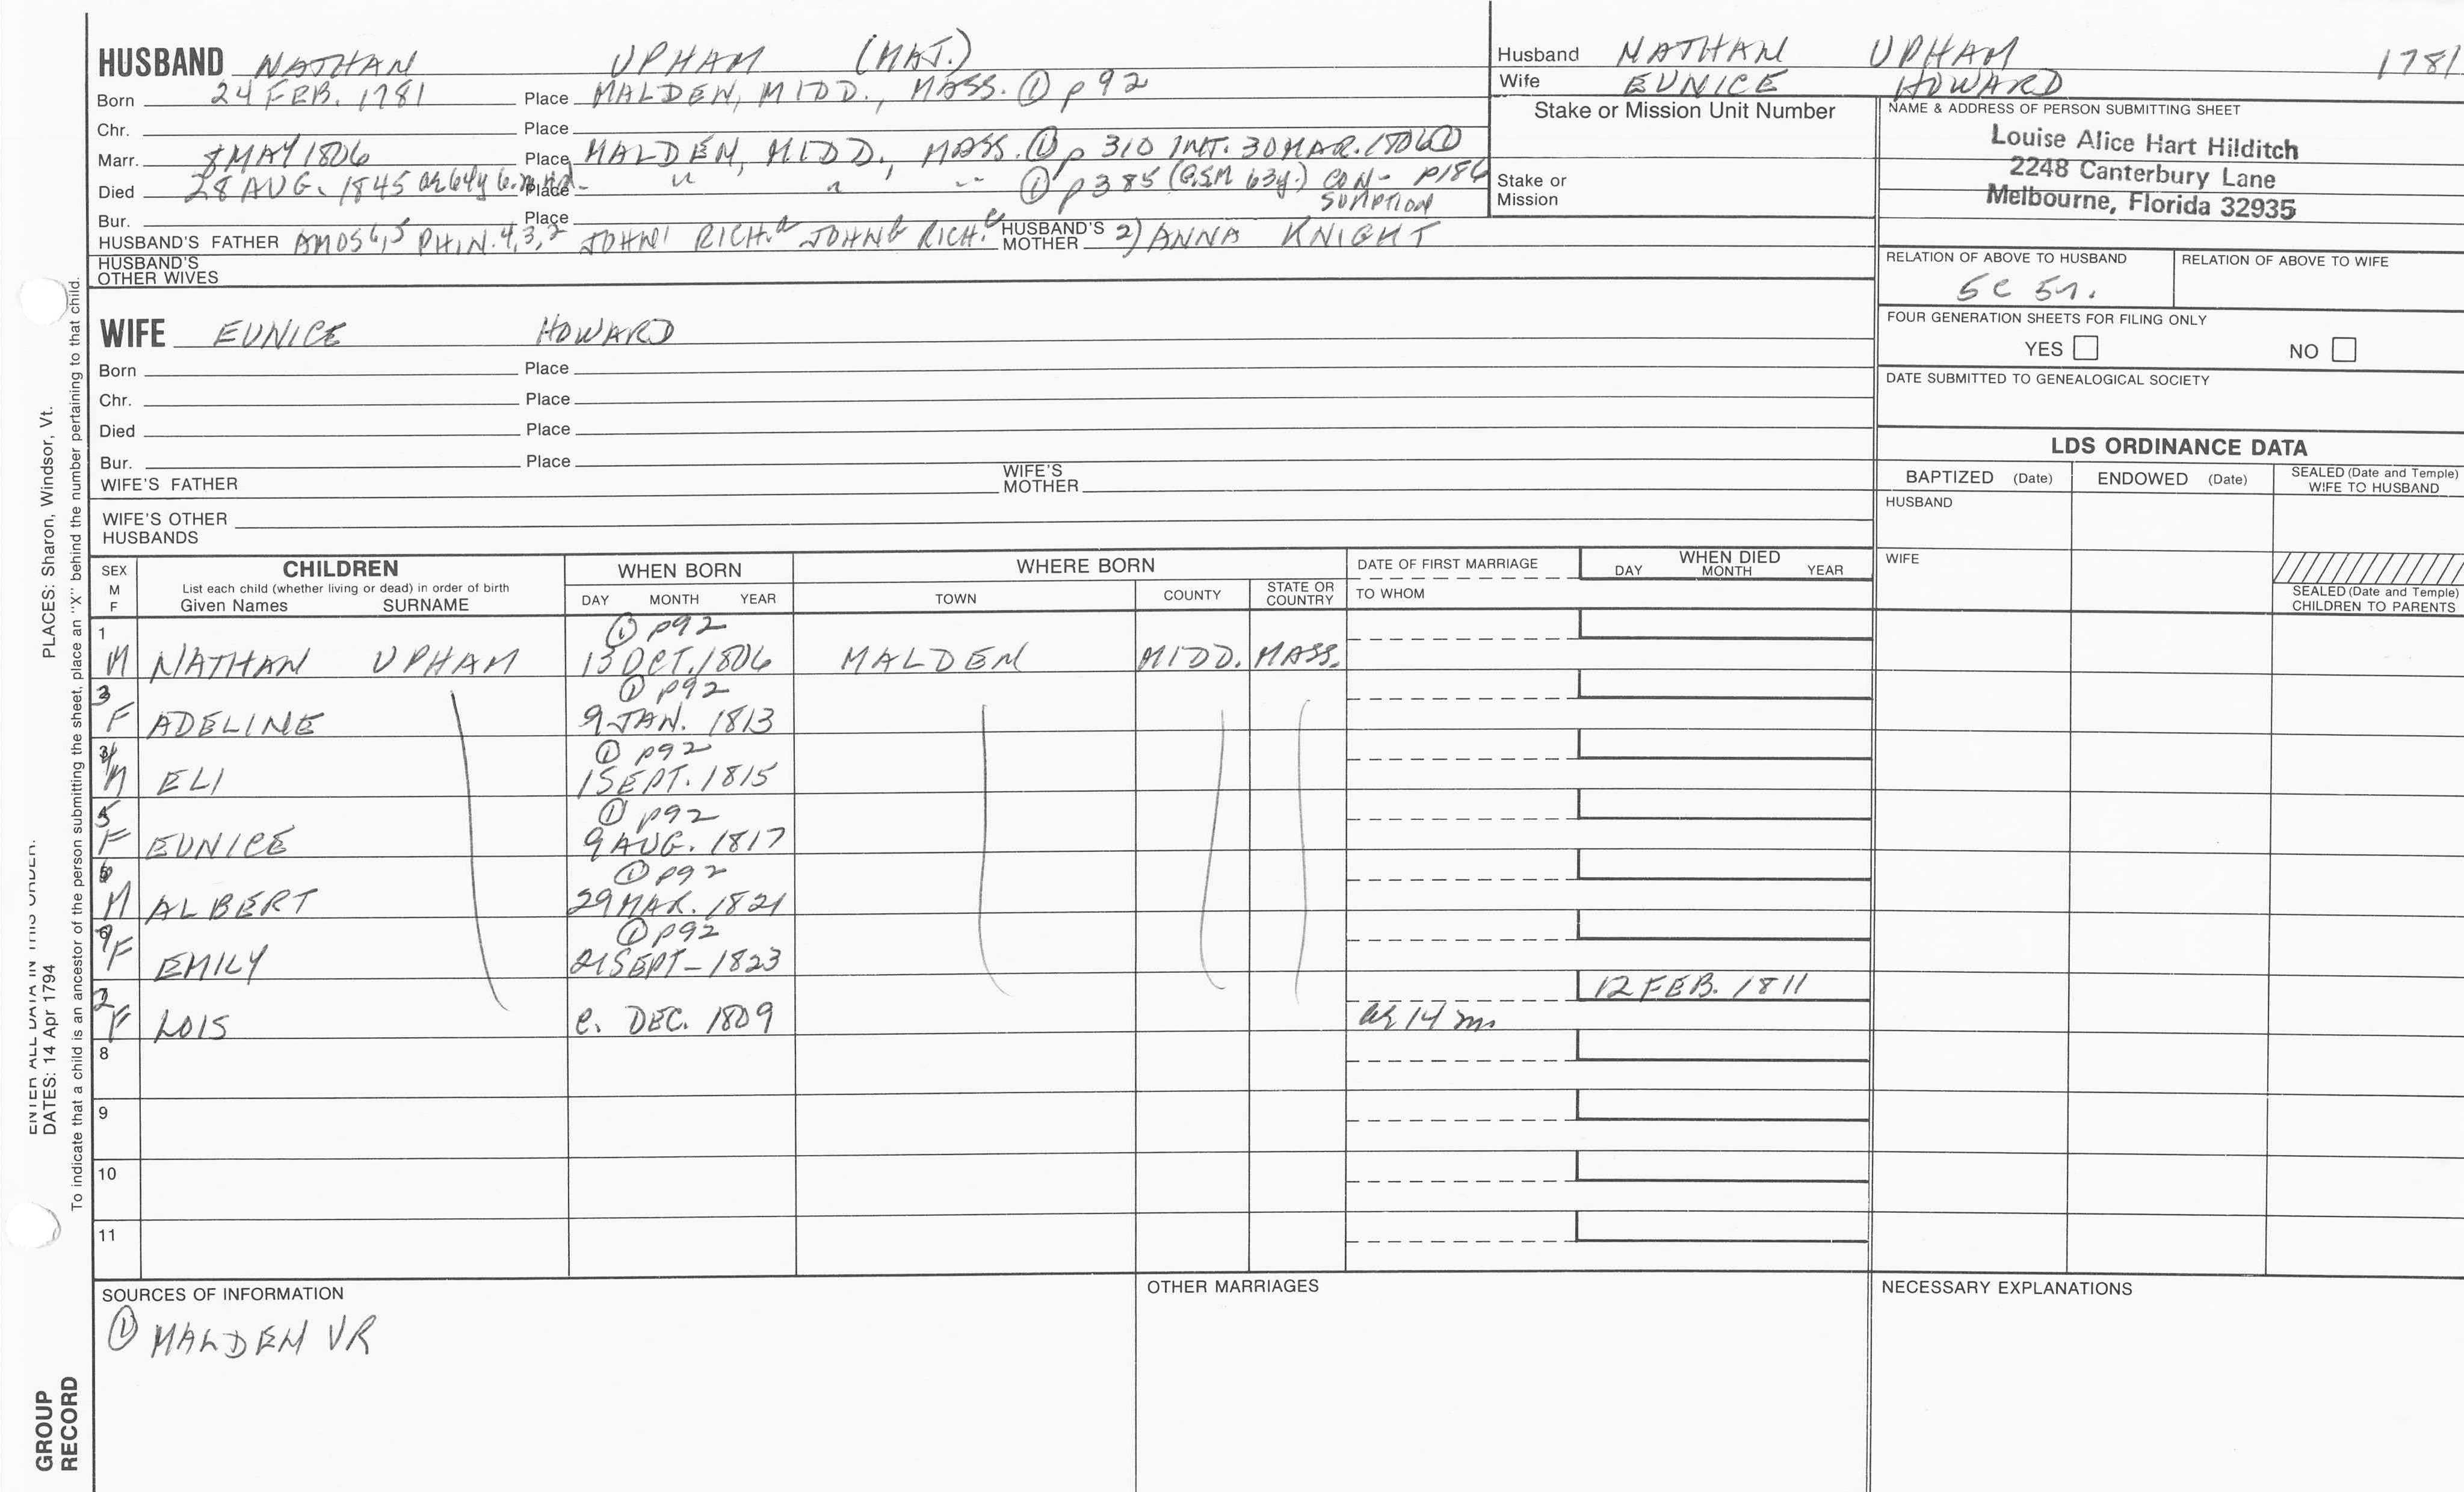 HUSBAND NATHAN UPHAM (MAJ.)
Born 24 FEB. 1781 Place MALDEN, MIDD., MASS. ① p 92
Chr. Place
Marr. 8 MAY 1806 Place MALDEN, MIDD., MASS. ① p 310 INT. 30 MAR. 1806 ①
Died 28 AUG. 1845 ae 64y 6m Place " " " ① p 385 (G.S.M 63y.) CON- p186
SUMPTION
Bur. Place
HUSBAND'S FATHER AMOS 6,5 PHIN. 4,3,2 JOHN 1 RICH. a JOHN b RICH. c HUSBAND'S MOTHER 2) ANNA KNIGHT
HUSBAND'S OTHER WIVES
WIFE EUNICE HOWARD
Born Place
Chr. Place
Died Place
Bur. Place
WIFE'S FATHER WIFE'S MOTHER
WIFE'S OTHER HUSBANDS
Husband NATHAN UPHAM 1781
Wife EUNICE HOWARD
Stake or Mission Unit Number
Stake or Mission
NAME & ADDRESS OF PERSON SUBMITTING SHEET
Louise Alice Hart Hilditch
2248 Canterbury Lane
Melbourne, Florida 32935
RELATION OF ABOVE TO HUSBAND RELATION OF ABOVE TO WIFE
5C 5r.
FOUR GENERATION SHEETS FOR FILING ONLY
YES NO
DATE SUBMITTED TO GENEALOGICAL SOCIETY
LDS ORDINANCE DATA
BAPTIZED (Date) ENDOWED (Date) SEALED (Date and Temple) WIFE TO HUSBAND
HUSBAND
WIFE
SEALED (Date and Temple) CHILDREN TO PARENTS
SEX M F
CHILDREN
List each child (whether living or dead) in order of birth
Given Names SURNAME
WHEN BORN
DAY MONTH YEAR
WHERE BORN
TOWN COUNTY STATE OR COUNTRY
DATE OF FIRST MARRIAGE
TO WHOM
WHEN DIED
DAY MONTH YEAR
1 ① p92
M NATHAN UPHAM 13 OCT. 1806 MALDEN MIDD. MASS.
3 ① p92
F ADELINE 9 JAN. 1813
4 ① p92
M ELI 1 SEPT. 1815
5 ① p92
F EUNICE 9 AUG. 1817
6 ① p92
M ALBERT 29 MAR. 1821
7 ① p92
F EMILY 21 SEPT- 1823
2 12 FEB. 1811
F LOIS c. DEC. 1809 ae 14 m
8
9
10
11
SOURCES OF INFORMATION
① MALDEN VR
OTHER MARRIAGES
NECESSARY EXPLANATIONS
PLACES: Sharon, Windsor, Vt.
To indicate that a child is an ancestor of the person submitting the sheet, place an "X" behind the number pertaining to that child.
ENTER ALL DATA IN THIS ORDER:
DATES: 14 Apr 1794
GROUP RECORD